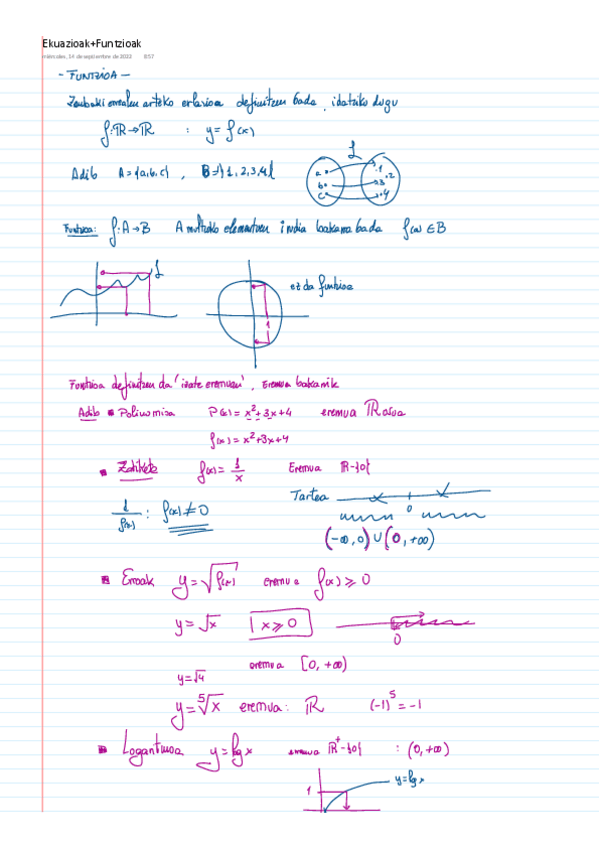 Ekuazioak+Funtzioak
miércoles, 14 de septiembre de 2022 8:57
- FUNTZIOA -
Zenbaki errealen arteko erlazioa definitzen bada, idatziko dugu
f: ℝ→ℝ : y = f(x)
Adib A={a,b,c}, B={1,2,3,4}
f
a b c
1 2 3 4
Funtzioa: f: A→B A multzoko elementuen irudia bakarra bada f(x) ∈ B
f
ez da funtzioa
1
Funtzioa definitzen da 'izate eremuan', eremua bakarrik
Adib Polinomioa P(x) = x²+3x+4 eremua ℝ osoa
f(x) = x²+3x+4
Zatiketa f(x) = 1/x Eremua ℝ-{0}
Tartea
1/f(x) : f(x) ≠ 0
0
(-∞,0) ∪ (0,+∞)
Erroak y = √f(x) eremua f(x) ⩾ 0
y = √x x ⩾ 0
0
eremua [0,+∞)
y = √4
y = ⁵√x eremua: ℝ (-1)⁵ = -1
Logaritmoa y = lg x eremua ℝ⁺-{0} : (0,+∞)
1 y = lg x